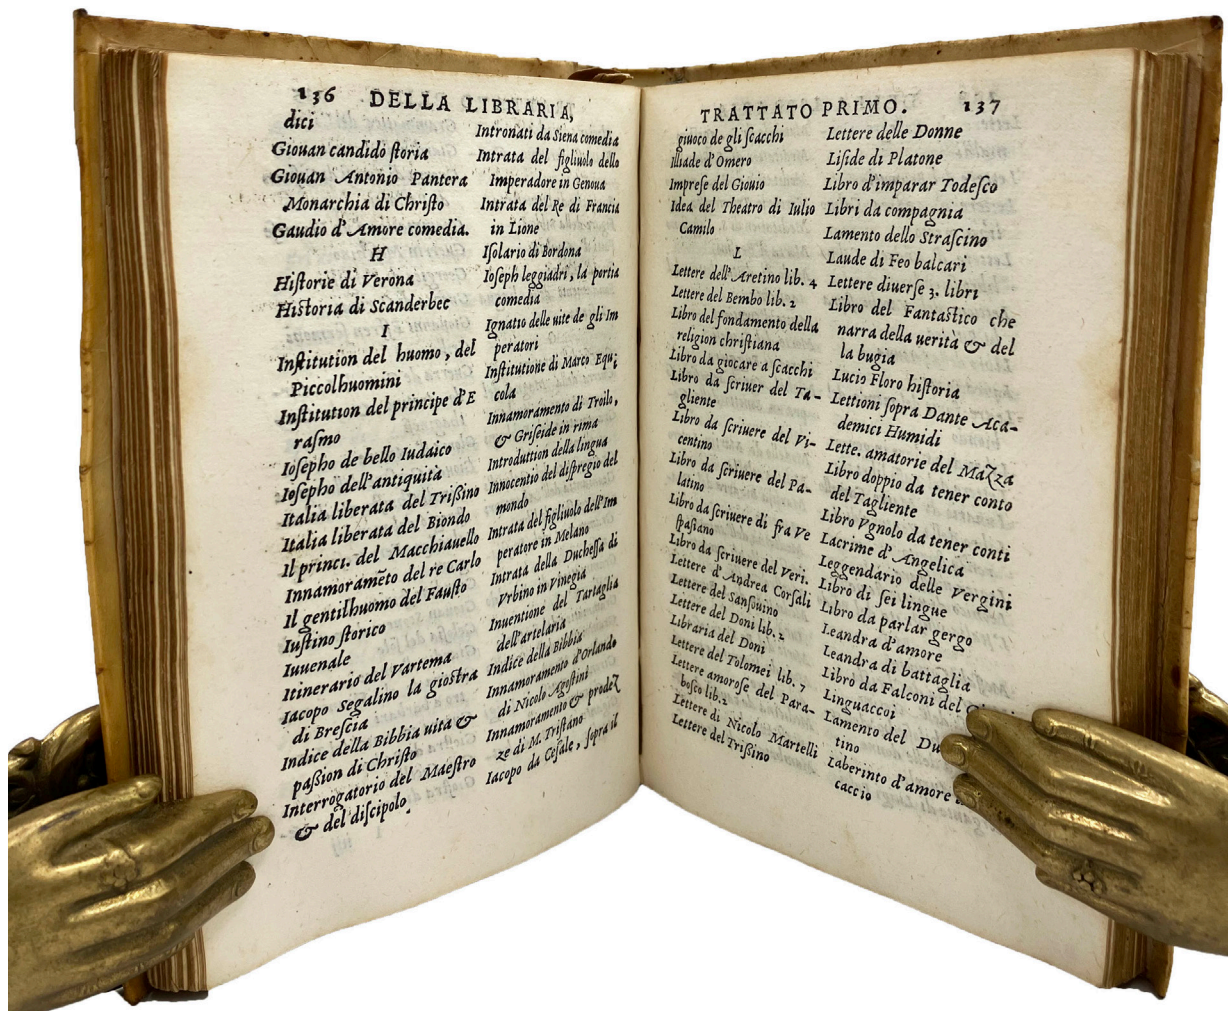 136 DELLA LIBRARIA,
dici
Giouan candido ſtoria
Giouan Antonio Pantera
Monarchia di Chriſto
Gaudio d'Amore comedia.
H
Hiſtorie di Verona
Hiſtoria di Scanderbec
I
Inſtitution del huomo, del
Piccolhuomini
Inſtitution del principe d'E
raſmo
Ioſepho de bello Iudaico
Ioſepho dell'antiquita
Italia liberata del Triſſino
Italia liberata del Biondo
Il princi. del Macchiauello
Innamoramẽto del re Carlo
Il gentilhuomo del Fauſto
Iuſtino ſtorico
Iuuenale
Itinerario del Vartema
Iacopo Segalino la gioſtra
di Breſcia
Indice della Bibbia uita &
paſſion di Chriſto
Interrogatorio del Maeſtro
& del diſcipolo
Intronati da Siena comedia
Intrata del figliuolo dello
Imperadore in Genoua
Intrata del Re di Francia
in Lione
Iſolario di Bordona
Ioſeph leggiadri, la portia
comedia
Ignatio delle uite de gli Im
peratori
Inſtitutione di Marco Equi
cola
Innamoramento di Troilo,
& Griſeide in rima
Introduttion della lingua
Innocentio del diſpregio del
mondo
Intrata del figliuolo dell'Im
peratore in Melano
Intrata della Ducheſſa di
Vrbino in Vinegia
Inuentione del Tartaglia
dell'artelaria
Indice della Bibbia
Innamoramento d'Orlando
di Nicolo Agoſtini
Innamoramento & prodez
ze di M. Triſtano
Iacopo da Ceſale, ſopra il
TRATTATO PRIMO. 137
giuoco de gli ſcacchi
Illiade d'Omero
Impreſe del Giouio
Idea del Theatro di Iulio
Camilo
L
Lettere dell'Aretino lib. 4
Lettere del Bembo lib. 2
Libro del fondamento della
religion chriſtiana
Libro da giocare a ſcacchi
Libro da ſcriuer del Ta-
gliente
Libro da ſcriuere del Vi-
centino
Libro da ſcriuere del Pa-
latino
Libro da ſcriuere di fra Ve
ſpaſiano
Libro da ſcriuere del Veri.
Lettere d'Andrea Corſali
Lettere del Sanſouino
Lettere del Doni lib. 2
Libraria del Doni
Lettere del Tolomei lib. 7
Lettere amoroſe del Para-
boſco lib. 2
Lettere di Nicolo Martelli
Lettere del Triſſino
Lettere delle Donne
Liſide di Platone
Libro d'imparar Todeſco
Libri da compagnia
Lamento dello Straſcino
Laude di Feo balcari
Lettere diuerſe 3. libri
Libro del Fantaſtico che
narra della uerità & del
la bugia
Lucio Floro hiſtoria
Lettioni ſopra Dante Aca-
demici Humidi
Lette. amatorie del Mazza
Libro doppio da tener conto
del Tagliente
Libro Vgnolo da tener conti
Lacrime d'Angelica
Leggendario delle Vergini
Libro di ſei lingue
Libro da parlar gergo
Leandra d'amore
Leandra di battaglia
Libro da Falconi del
Linguaccoi
Lamento del Du
tino
Laberinto d'amore
caccio